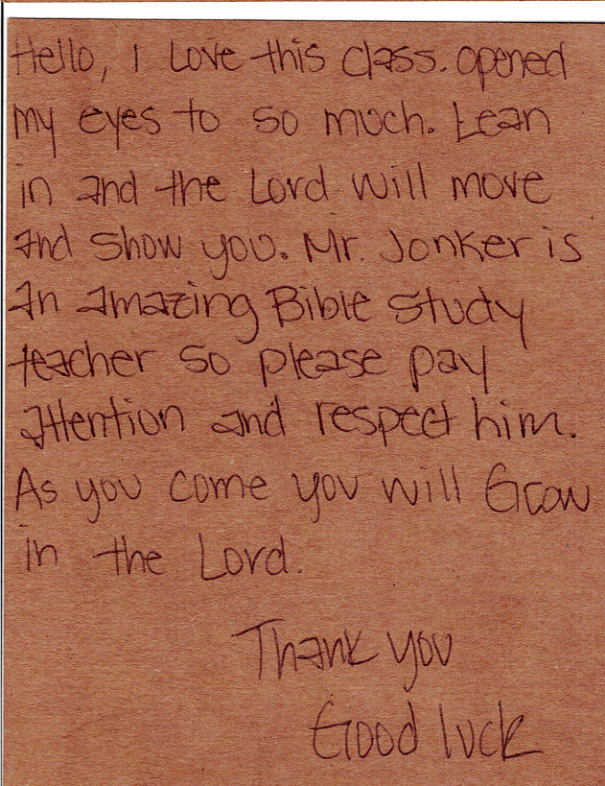 Hello, I Love this class. opened
my eyes to so much. Lean
in and the Lord will move
and show you. Mr. Jonker is
an amazing Bible study
teacher so please pay
attention and respect him.
As you come you will Grow
in the Lord.
Thank you
Good luck